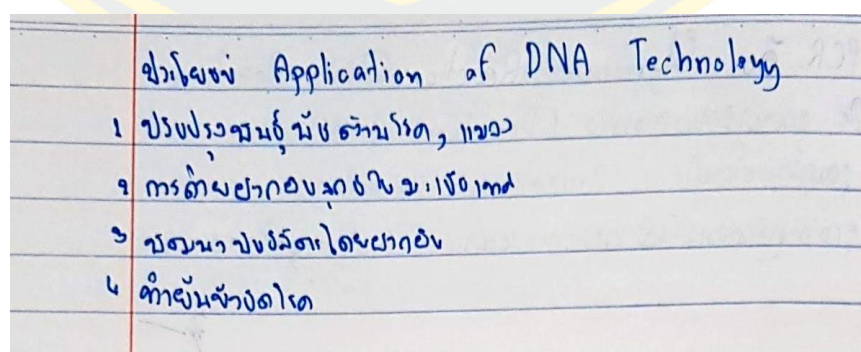 ประโยชน์ Application of DNA Technology
1 ปรับปรุงพันธุ์พืชต้านโรค, แมลง
2 การถ่ายฝากยีนสุกช้าในมะเขือเทศ
3 พัฒนาปรสิต โดยฝากยีน
4 ทำยีนบำบัดโรค